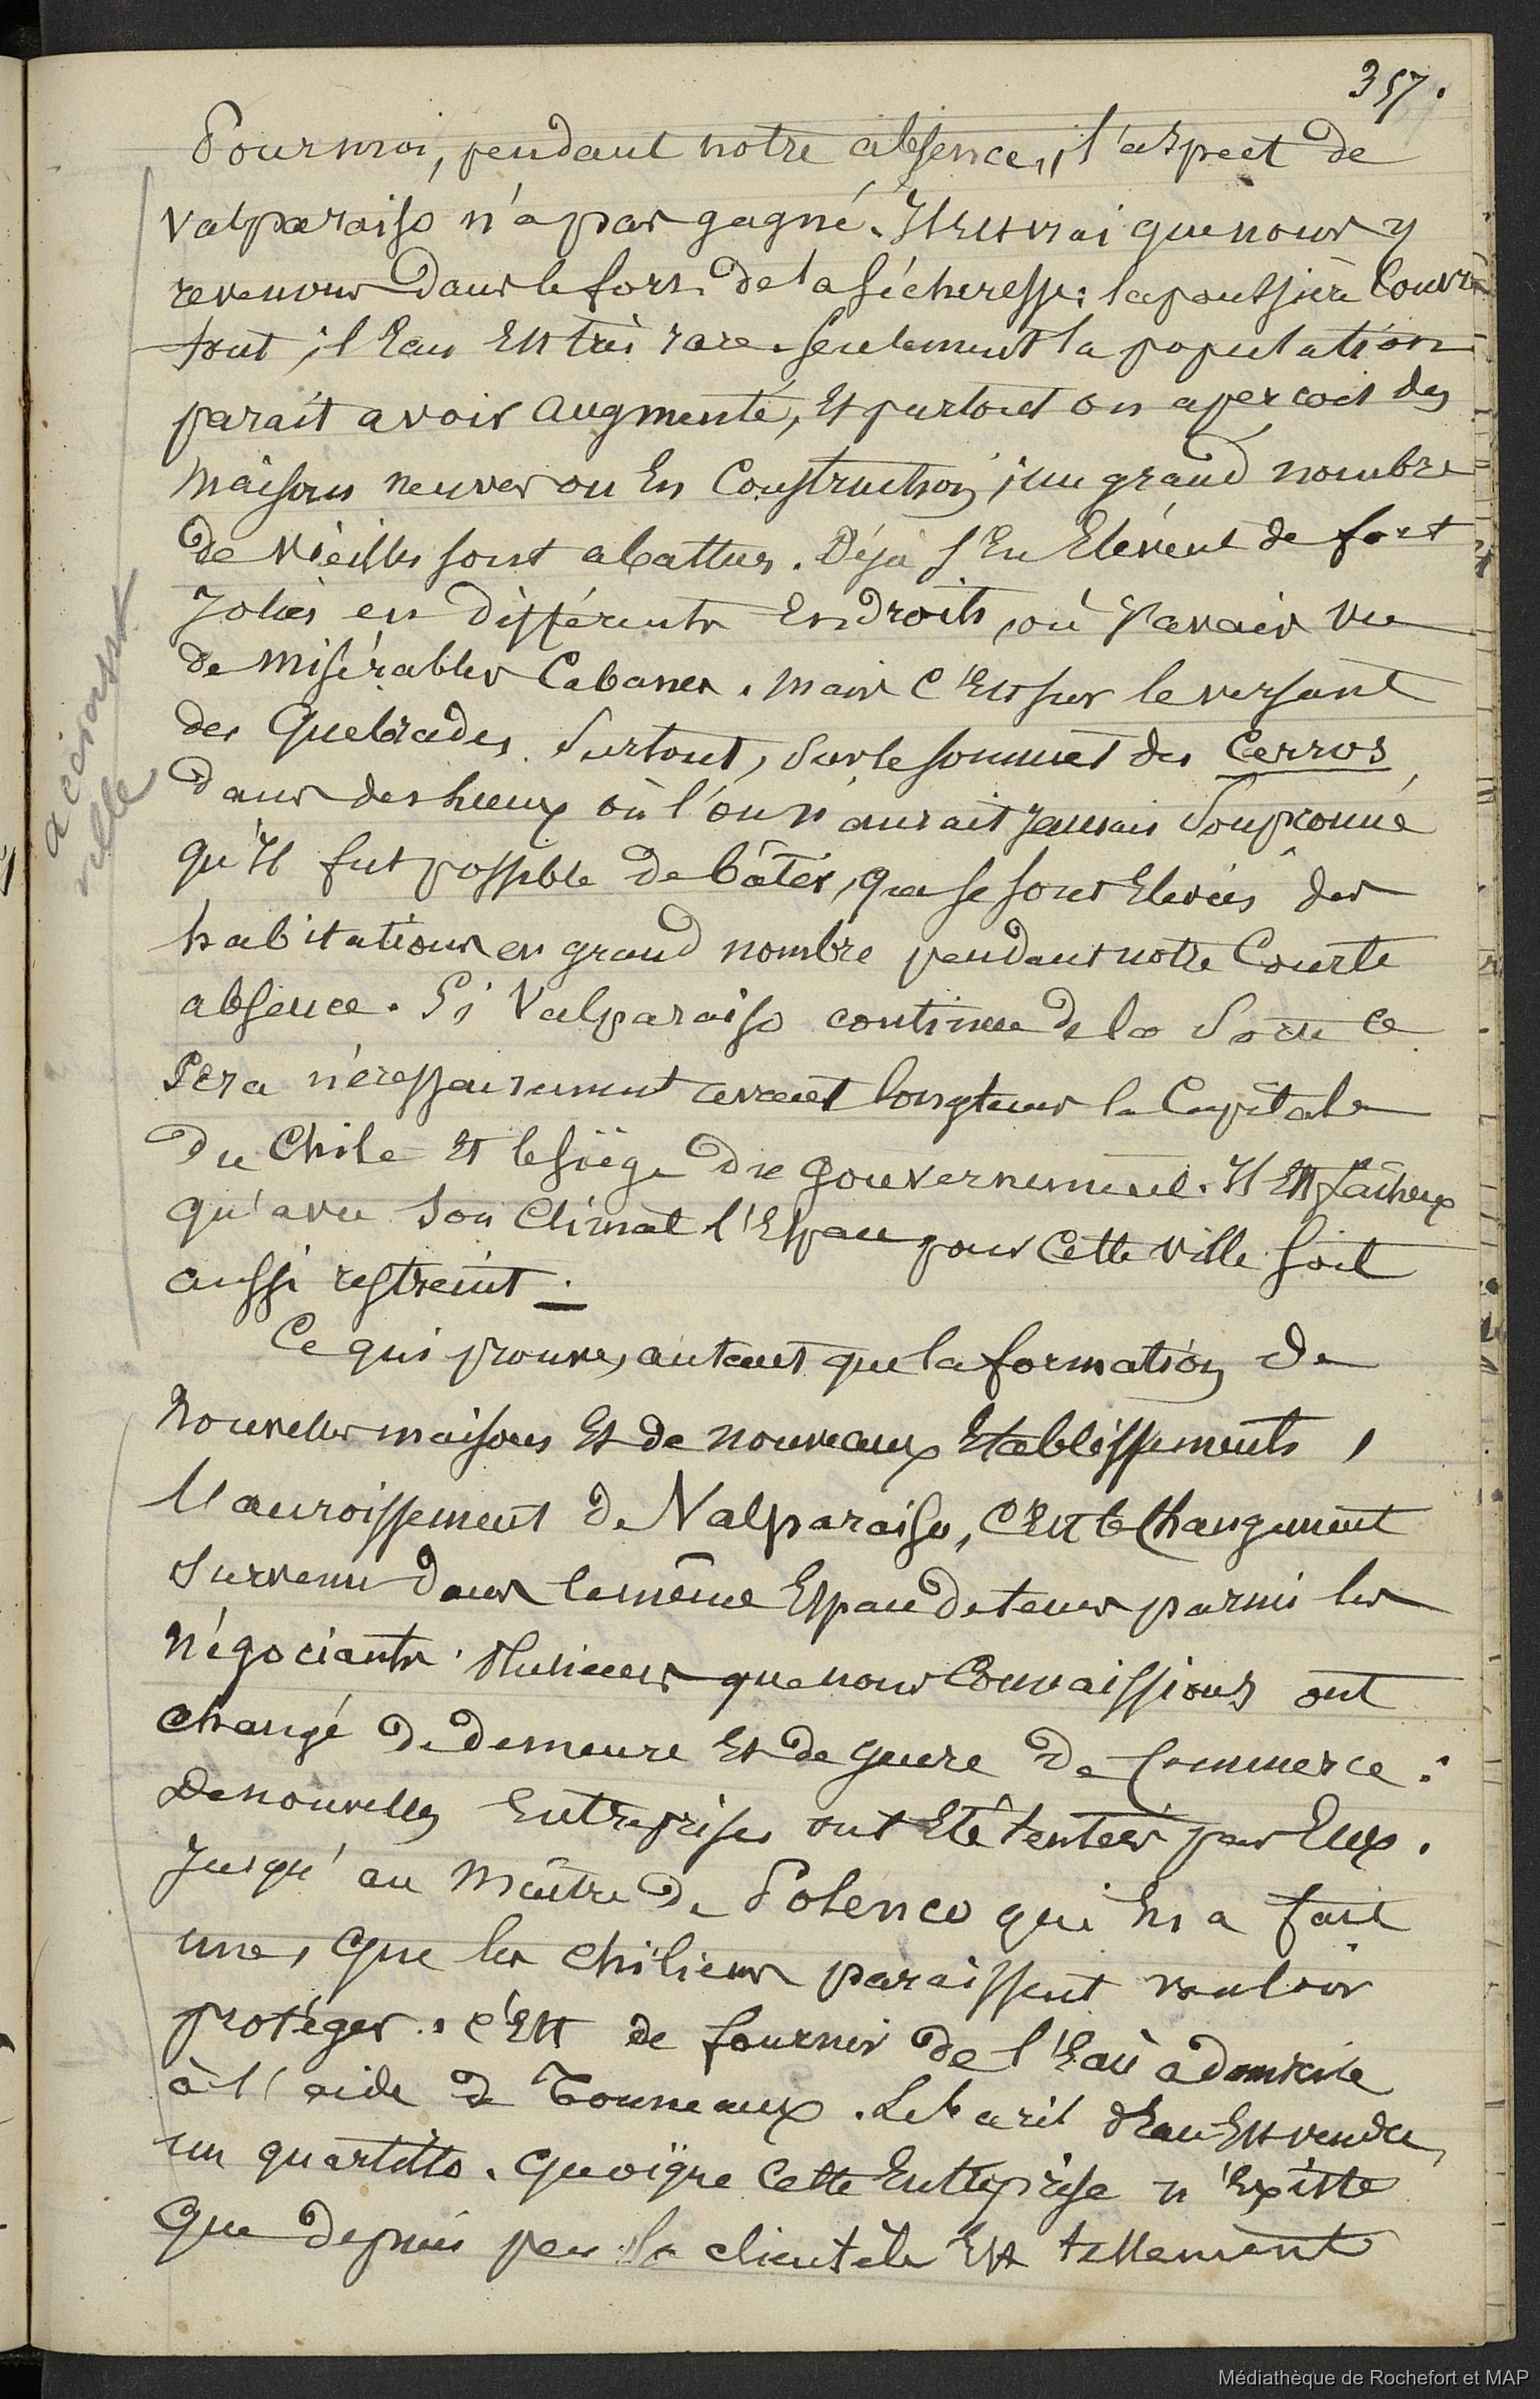 357.
Pour moi, pendant notre absence, l'aspect de
Valparaiso n'a pas gagné. Il est vrai que nous y
revenons dans le fort de la sécheresse: la poussière couvre
tout; l'eau est très rare. Seulement la population
parait avoir augmenté, et partout on apercoit des
maisons neuves ou en construction; un grand nombre
de vieilles sont abattues. Déjà s'en élèvent de fort
jolies en différents endroits, où j'avais vu
de misérables cabanes. Mais c'est sur le versant
des Quebrades surtout, sur le sommet des Cerros
dans des lieux où l'on n'aurait jamais soupconné
qu'il fut possible de bâtir, que se sont élevées des
habitations en grand nombre pendant notre courte
absence. Si Valparaiso continue de la sorte ce
sera nécessairement avant longtems la Capitale
du Chile et le siège du gouvernement. Il est fâcheux
qu'avec son climat l'espace pour cette ville soit
aussi restreint.
Ce qui prouve, autant que la formation de
nouvelles maisons et de nouveaux établissements,
l'accroissement de Valparaiso, c'est le changement
survenu dans le même espace de tems parmi les
négociants. Plusieurs que nous connaissions ont
changé de demeure et de genre de commerce:
de nouvelles entreprises ont été tentées par eux.
Jusqu'au maître de Polenco qui en a fait
une, que les chiliens paraissent vouloir
protéger: c'est de fournir de l'eau à domicile
à l'aide de tonneaux. Le baril d'eau est vendu
un quartillo. Quoique cette entreprise n'existe
que depuis peu sa clientèle est tellement
accroisst
ville
Médiathèque de Rochefort et MAP